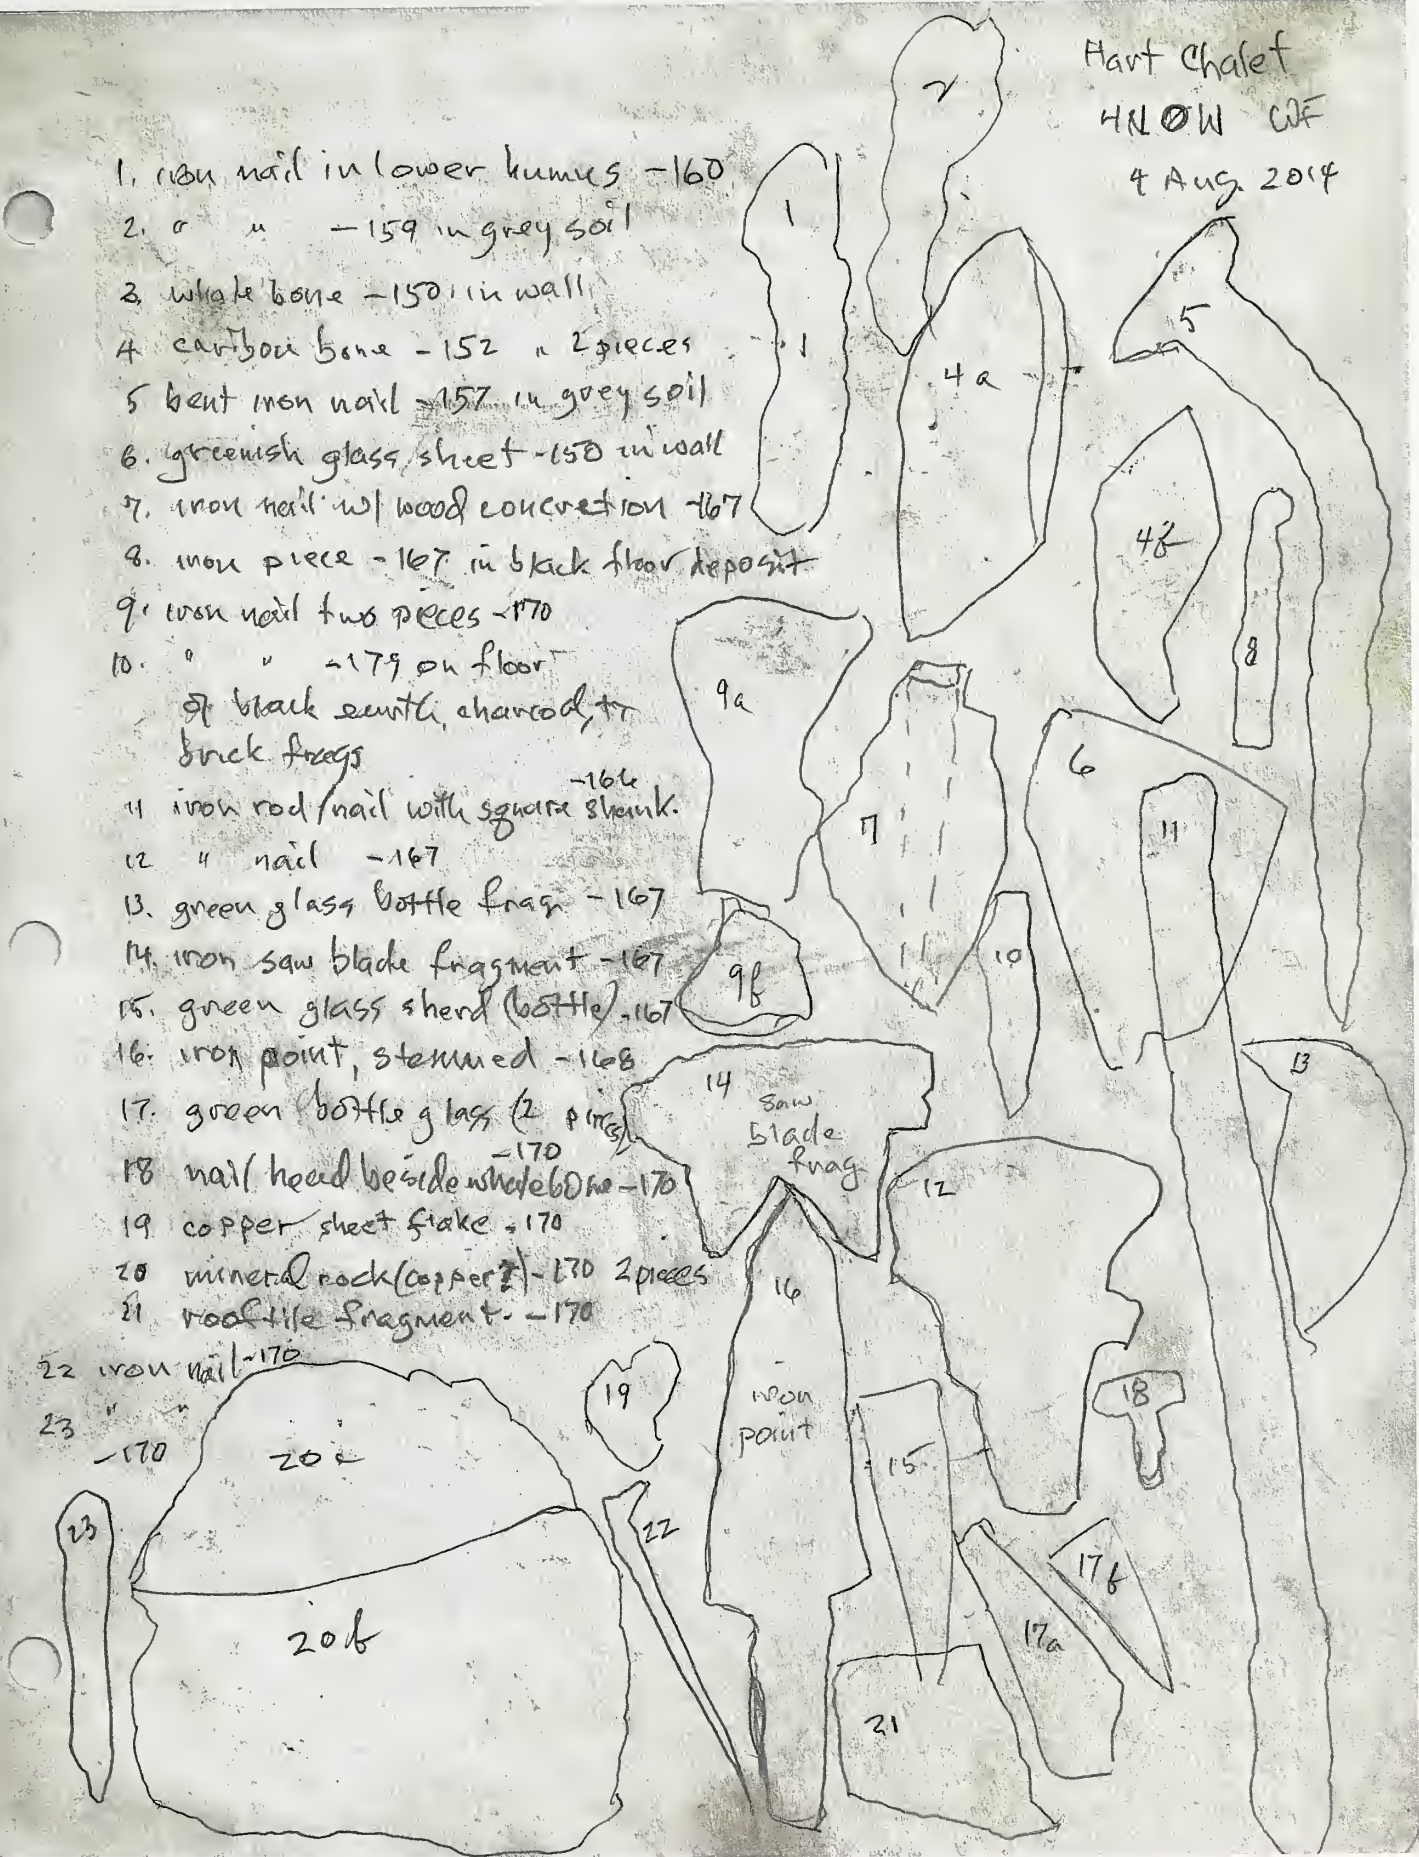 Hart Chalet
4N 0W WF
4 Aug. 2014
1. iron nail in lower humus -160
2. " " -159 in grey soil
3. whale bone -150 in wall
4 caribou bone -152 " 2 pieces
5 bent iron nail -157 in grey soil
6. greenish glass sheet -150 in wall
7. iron nail w/ wood concretion -167
8. iron piece -167 in black floor deposit
9. iron nail two pieces -170
10. " " -179 on floor
of black earth, charcoal, +
brick frags
-166
11 iron rod/nail with square shank.
12 " nail -167
13. green glass bottle frag -167
14. iron saw blade fragment -167
15. green glass sherd (bottle) -167
16. iron point, stemmed -168
17. green bottle glass (2 pieces)
-170
18 nail head beside whalebone -170
19 copper sheet flake -170
20 mineral rock (copper?) -170 2 pieces
21 roof tile fragment. -170
22 iron nail -170
23 " "
-170
2
1
1
5
4a
4b
8
9a
6
7
11
10
9b
13
14
saw
blade
frag
12
16
iron
point
18
19
15
20a
22
23
17b
17a
20b
21